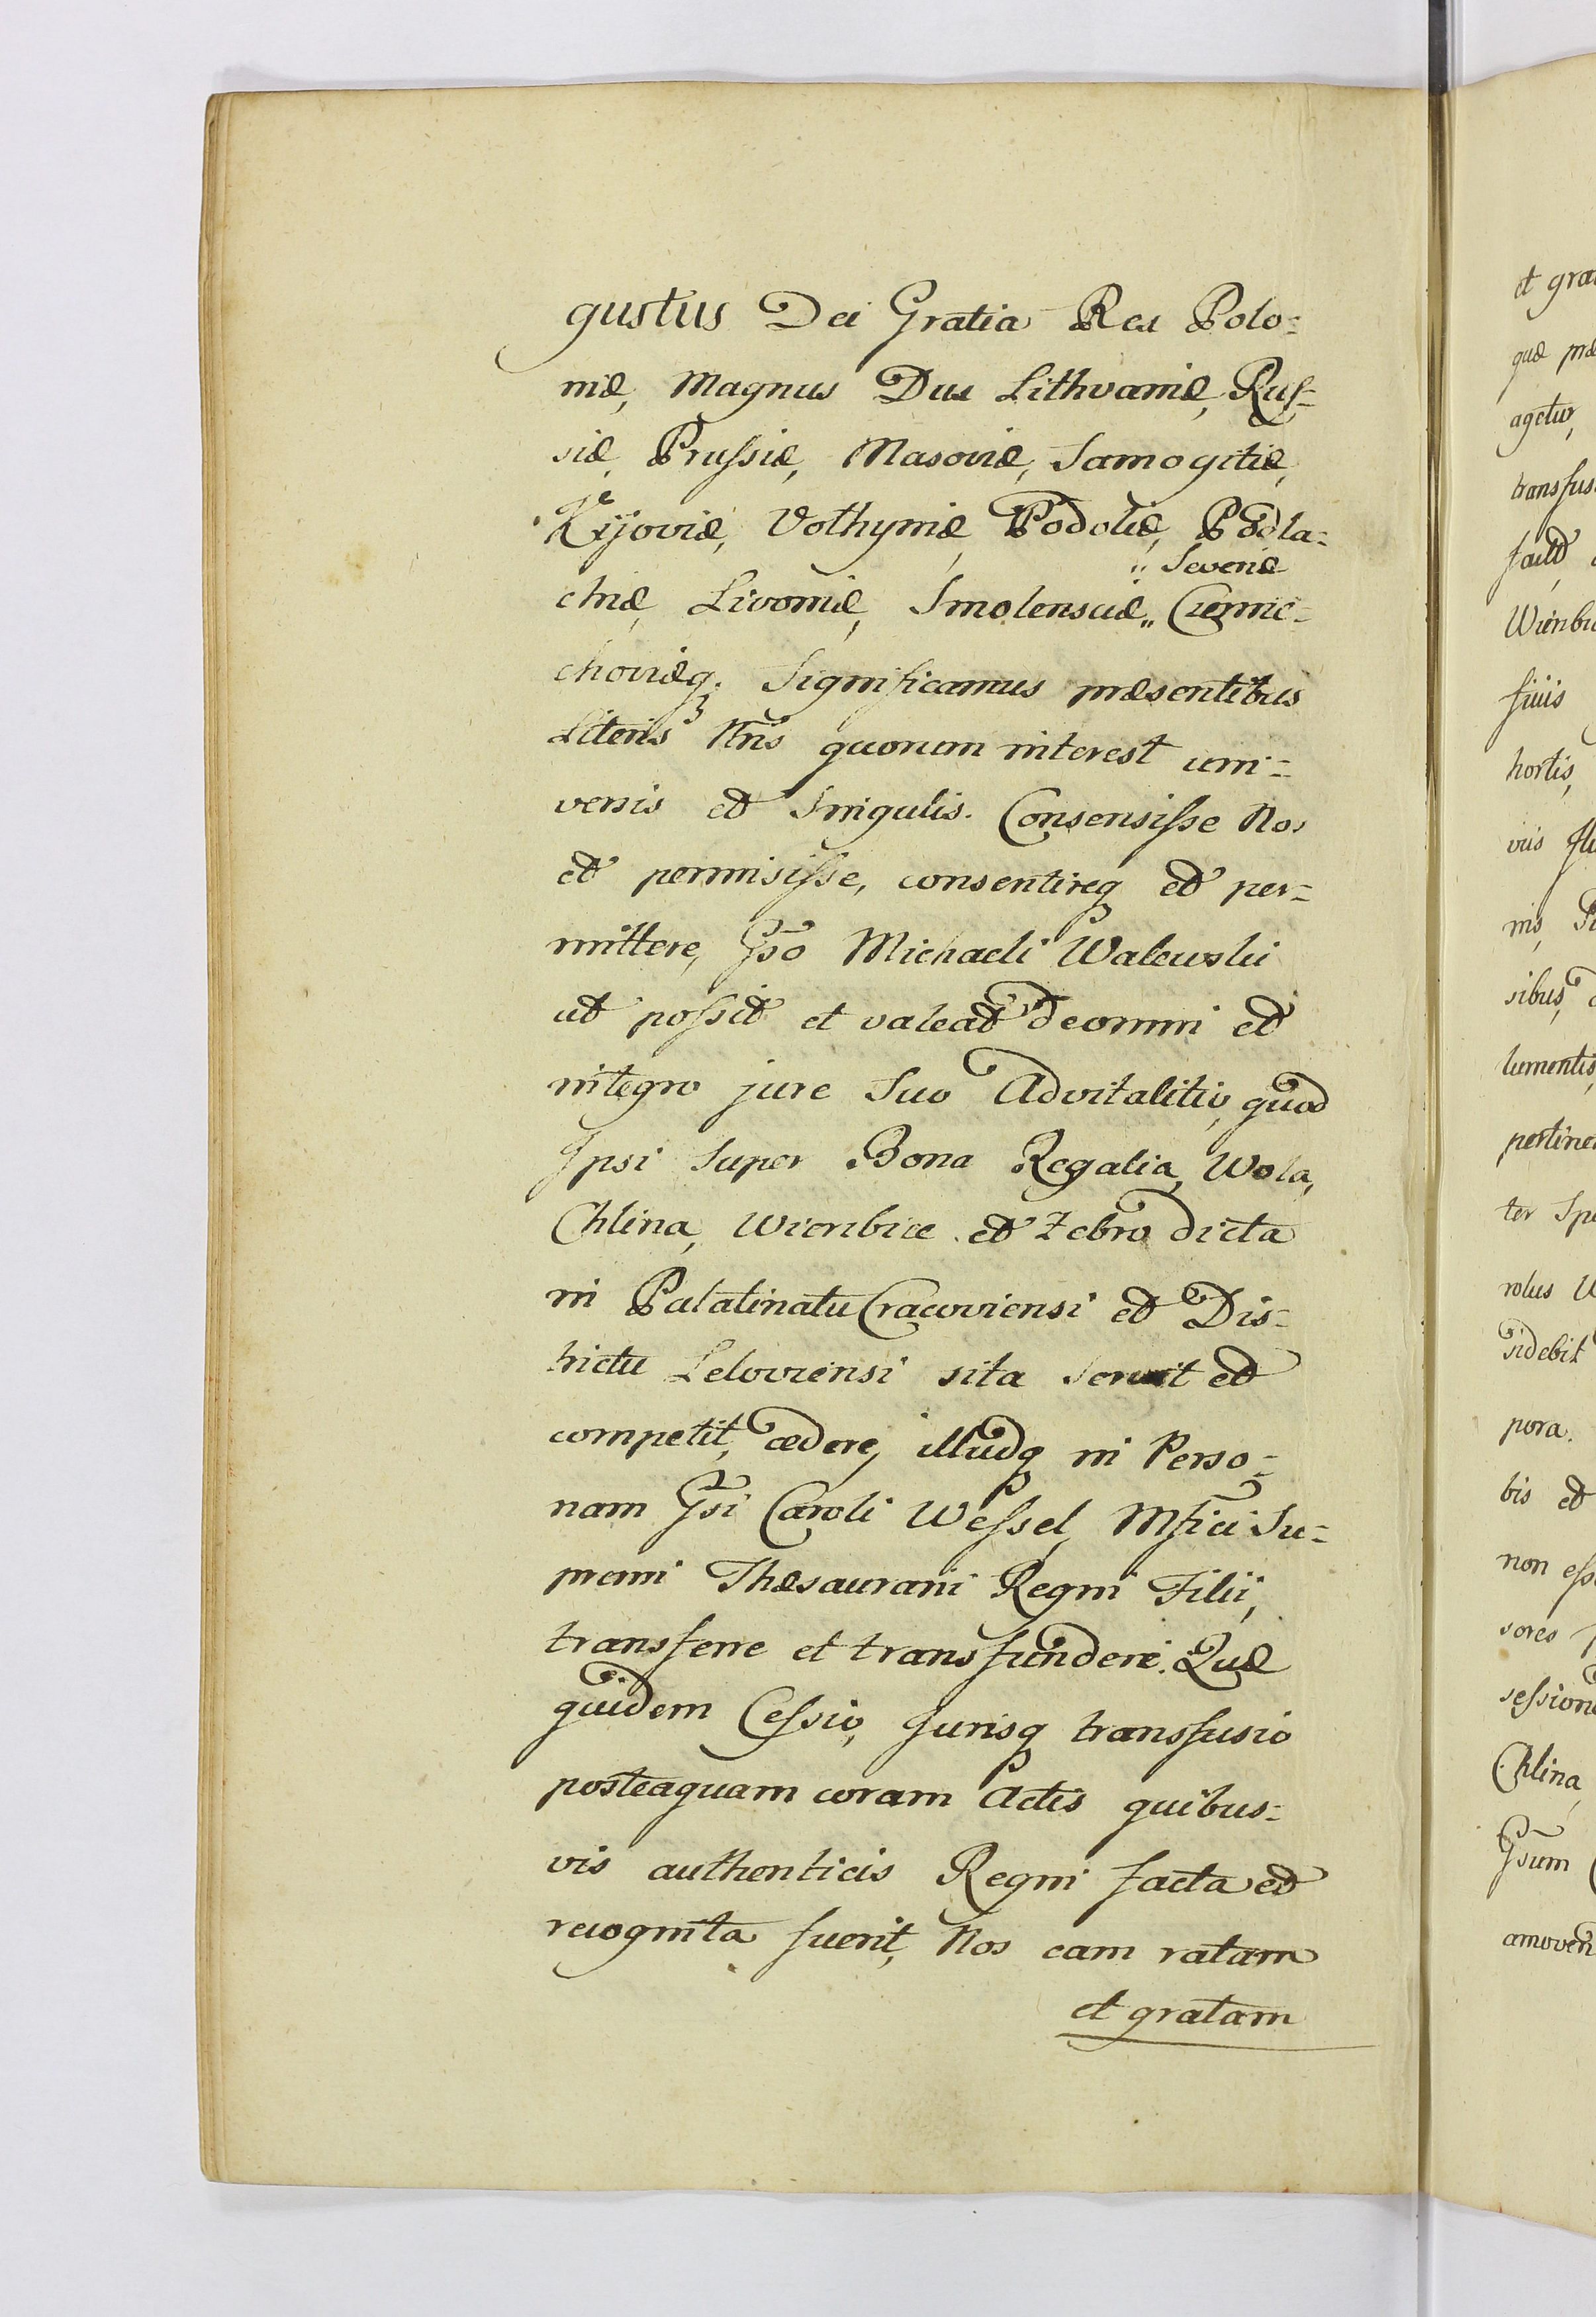 gustus Dei Gratia Rex Polo=
niæ, Magnus Dux Lithvaniæ, Rus=
siæ, Prussiæ, Masoviæ, Samogitiæ,
Kijoviæ, Volhyniæ, Podoliæ, Podla=
„ Severiæ
chiæ, Livoniæ, Smolensciæ„ Czernie=
choviæq; Significamus præsentibus
Literis Nris quorum interest uni=
versis et Singulis. Consensisse Nos
et permisisse, consentireq et per=
mittere, Gso Michaeli Walewski
ut possit et valeat de omni et
integro jure Suo Advitalitio, quod
Ipsi Super Bona Regalia, Wola,
Chlina, Wierzbice et Zebro dicta
in Palatinatu Cracoviensi et Dis=
trictu Leloviensi sita Servit et
competit, cædere, illudq in Perso=
nam Gsi Caroli Wessel, Mfici Su=
premi Thæsaurarii Regni Filii,
transferre et transfundere. Quæ
quidem Cessio, Jurisq transfusio
posteaquam coram Actis quibus=
vis authenticis Regni facta et
recognita fuerit, Nos eam ratam
et gratam
et gra
quæ præ
agetur,
transfus
hortis,
sibus,
pora.
bis et
Chlina,
Gsum